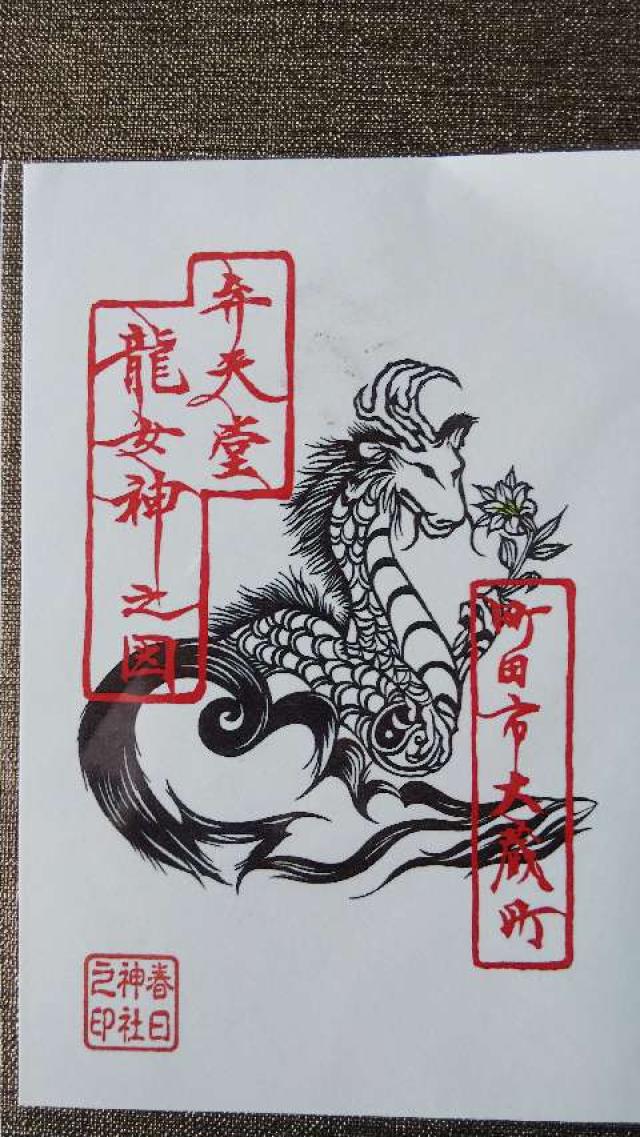 弁天堂
龍女神之図
町田市大蔵町
春日
神社
之印